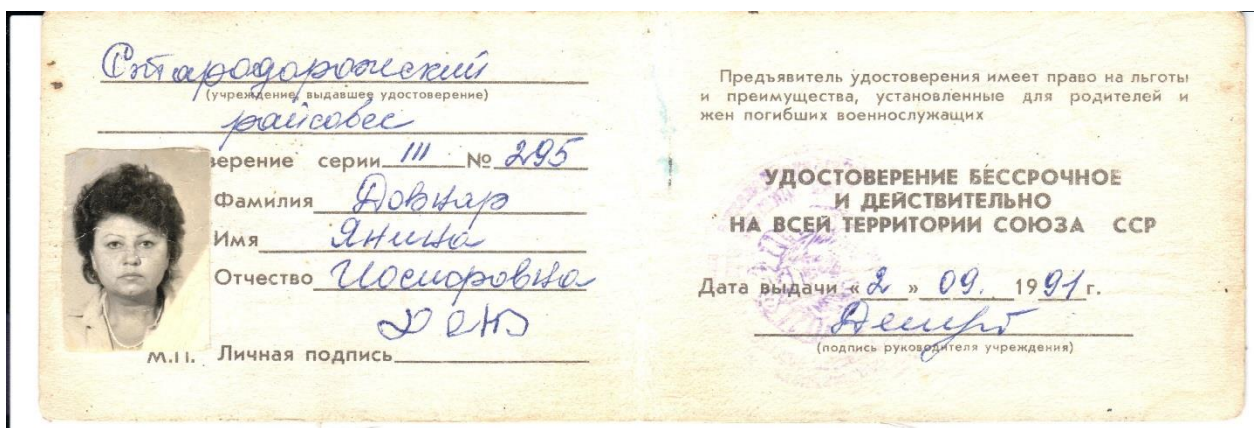 Стародорожский
(учреждение, выдавшее удостоверение)
райсовес
верение серии III № 295
Фамилия Довнар
Имя Янина
Отчество Иосифовна
М.П. Личная подпись
Предъявитель удостоверения имеет право на льготы
и преимущества, установленные для родителей и
жен погибших военнослужащих
УДОСТОВЕРЕНИЕ БЕССРОЧНОЕ
И ДЕЙСТВИТЕЛЬНО
НА ВСЕЙ ТЕРРИТОРИИ СОЮЗА ССР
Дата выдачи « 2 » 09. 1991 г.
(подпись руководителя учреждения)